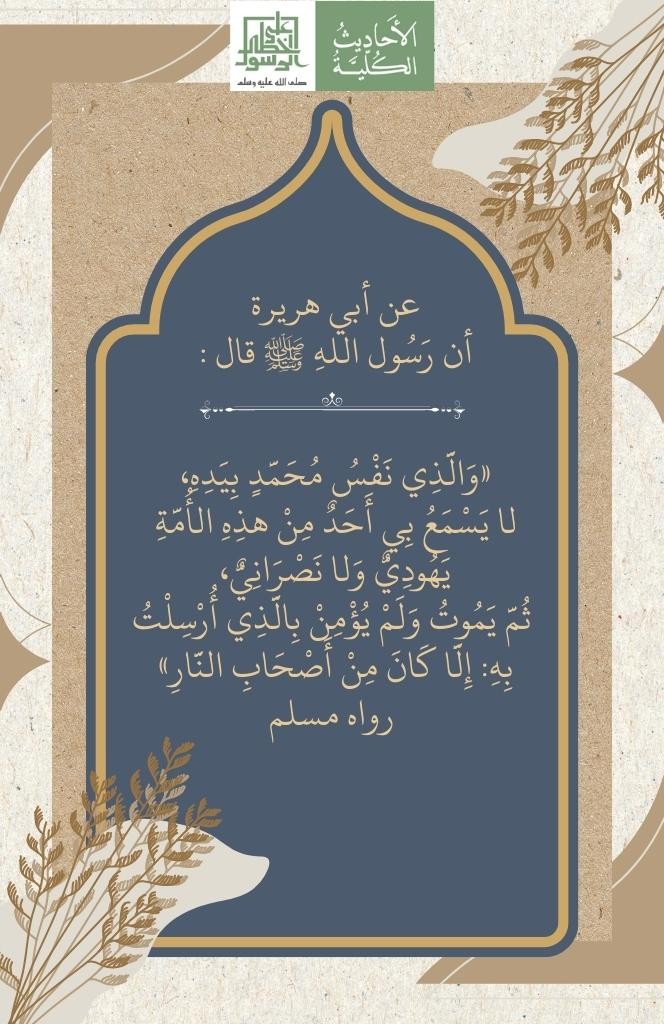 على خطى الرسول
صلى الله عليه وسلم
الأَحَادِيثُ
الكُلِّيَّةُ
عن أبي هريرة
أن رَسُول اللهِ ﷺ قال :
«وَالَّذِي نَفْسُ مُحَمّدٍ بِيَدِهِ،
لا يَسْمَعُ بِي أَحَدٌ مِنْ هذِهِ الأُمّةِ
يَهُودِيٌّ وَلا نَصْرَانِيٌّ،
ثُمّ يَمُوتُ وَلَمْ يُؤْمِنْ بِالّذِي أُرْسِلْتُ
بِهِ: إِلّا كَانَ مِنْ أَصْحَابِ النّارِ»
رواه مسلم